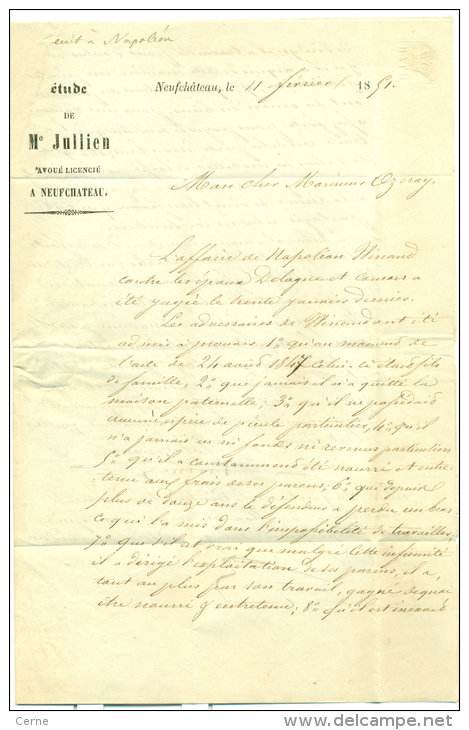 écrit à Napoléon
étude
DE
Me Jullien
AVOUÉ LICENCIÉ
A NEUFCHATEAU.
Neufchâteau, le 11 février 1851.
Mon cher Monsieur Ozeray,
L'affaire de Napoléon Winand
contre les époux Delogne et consors a
été jugée le trente janvier dernier.
Les adversaires de Winand ont été
admis à prouver 1o qu'au moment de
l'acte de 24 août 1847 Celui-ci était fils
de famille, 2o que jamais il n'a quitté la
maison paternelle; 3o qu'il ne possédait
aucune espèce de pécule particulier, 4o qu'il
n'a jamais eu ni fonds ni revenus particuliers
5o qu'il a constamment été nourri et entre-
tenu aux frais de ses parens; 6o que depuis
plus de douze ans le défendeur a perdu un bras
ce qui l'a mis dans l'impossibilité de travailler,
7o que s'il est vrai que malgré cette infirmité
il a dirigé l'exploitation de ses parens, il a,
tout au plus par son travail, gagné de quoi
être nourri & entretenu; 8o qu'il est
Cerne
www.delcampe.net